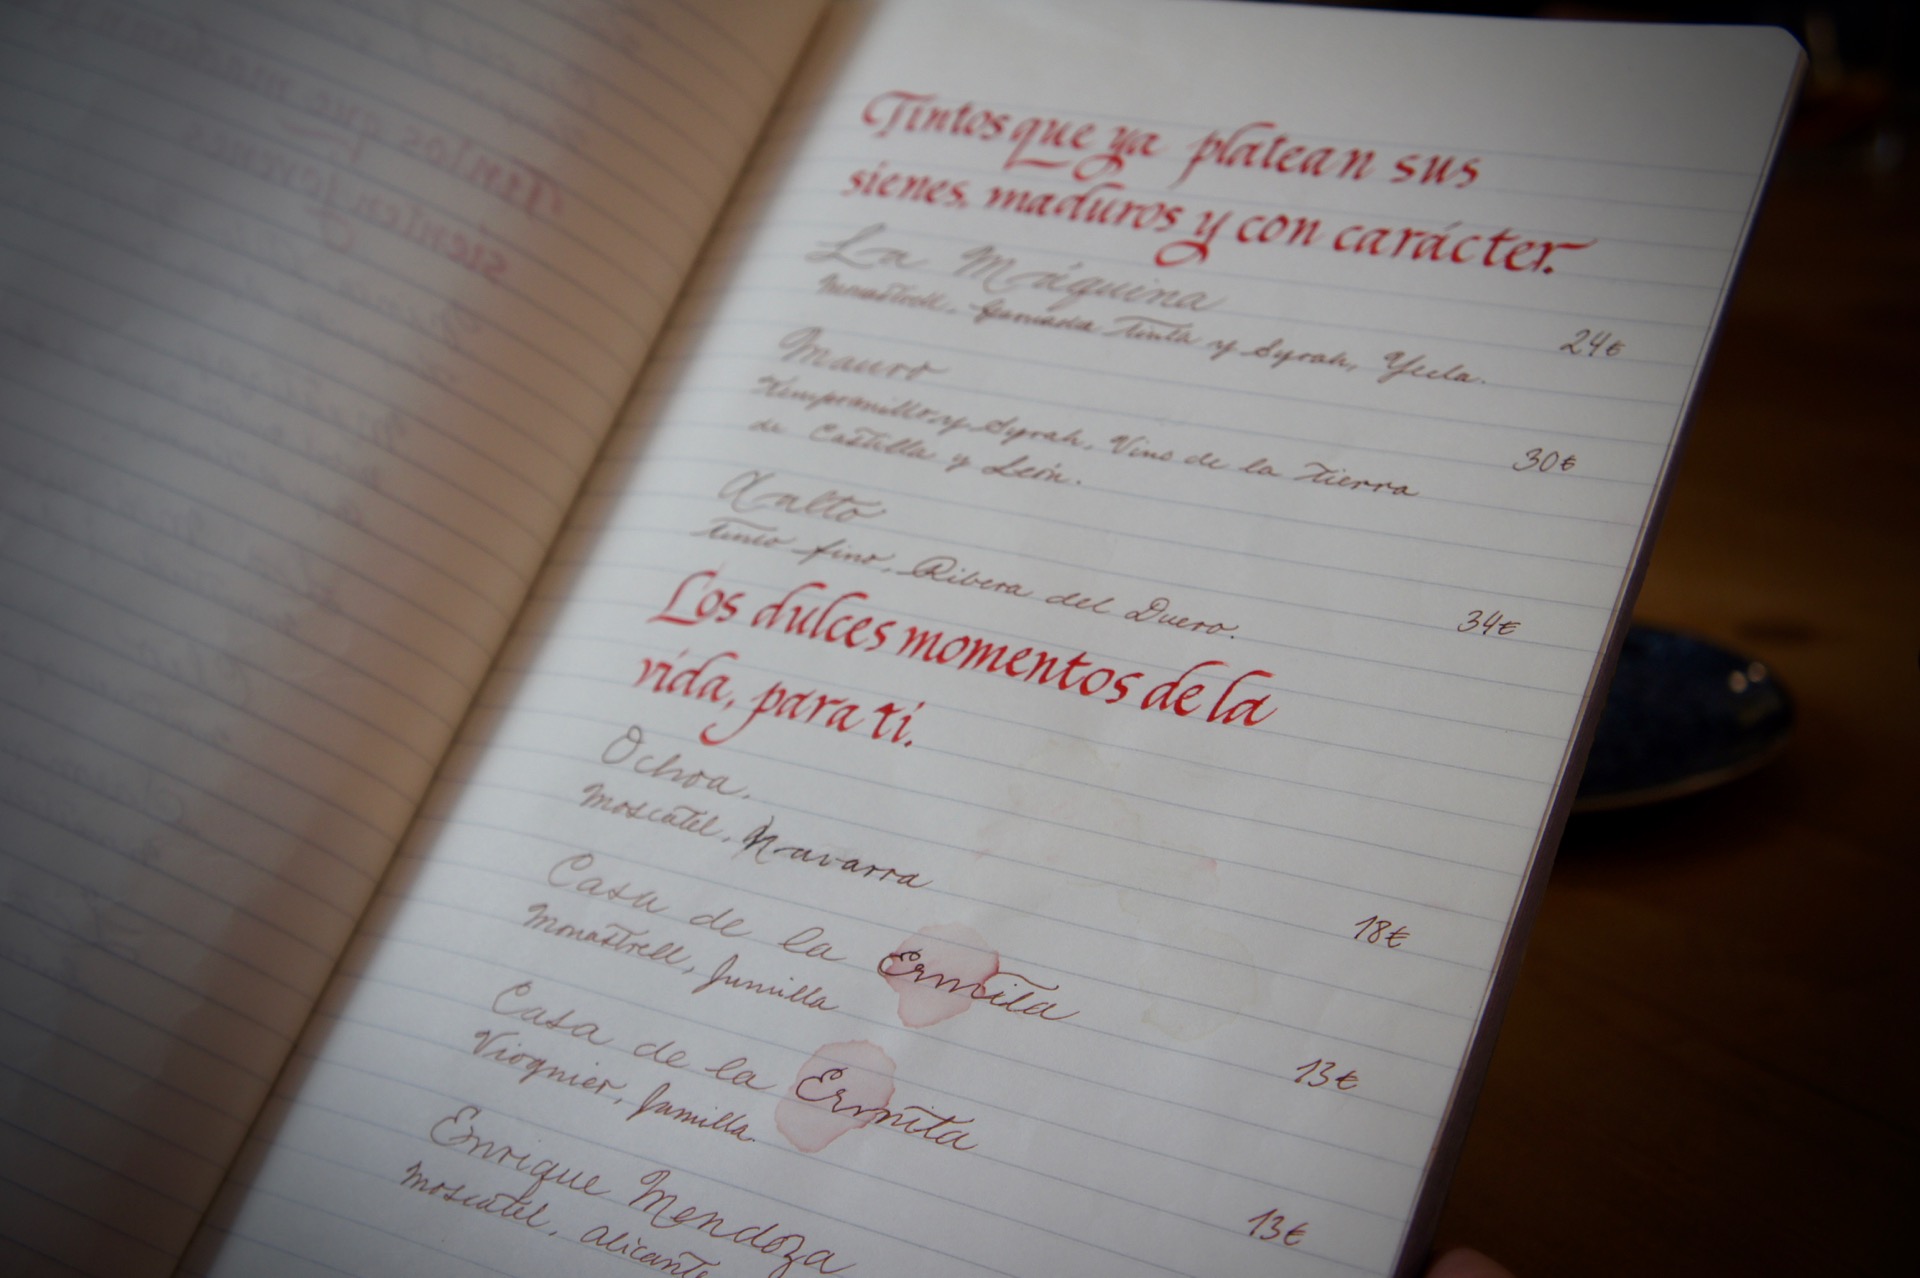 Tintos que ya platean sus
sienes, maduros y con carácter.
La Máquina
Monastrell, Garnacha Tinta y Syrah, Yecla. 24€
Mauro
Tempranillo y Syrah, Vino de la Tierra 30€
de Castilla y León.
Aalto
Tinto fino, Ribera del Duero. 34€
Los dulces momentos de la
vida, para ti.
Ochoa.
Moscatel, Navarra 18€
Casa de la Ermita
Monastrell, Jumilla 13€
Casa de la Ermita
Viognier, Jumilla. 13€
Enrique Mendoza
Moscatel, Alicante